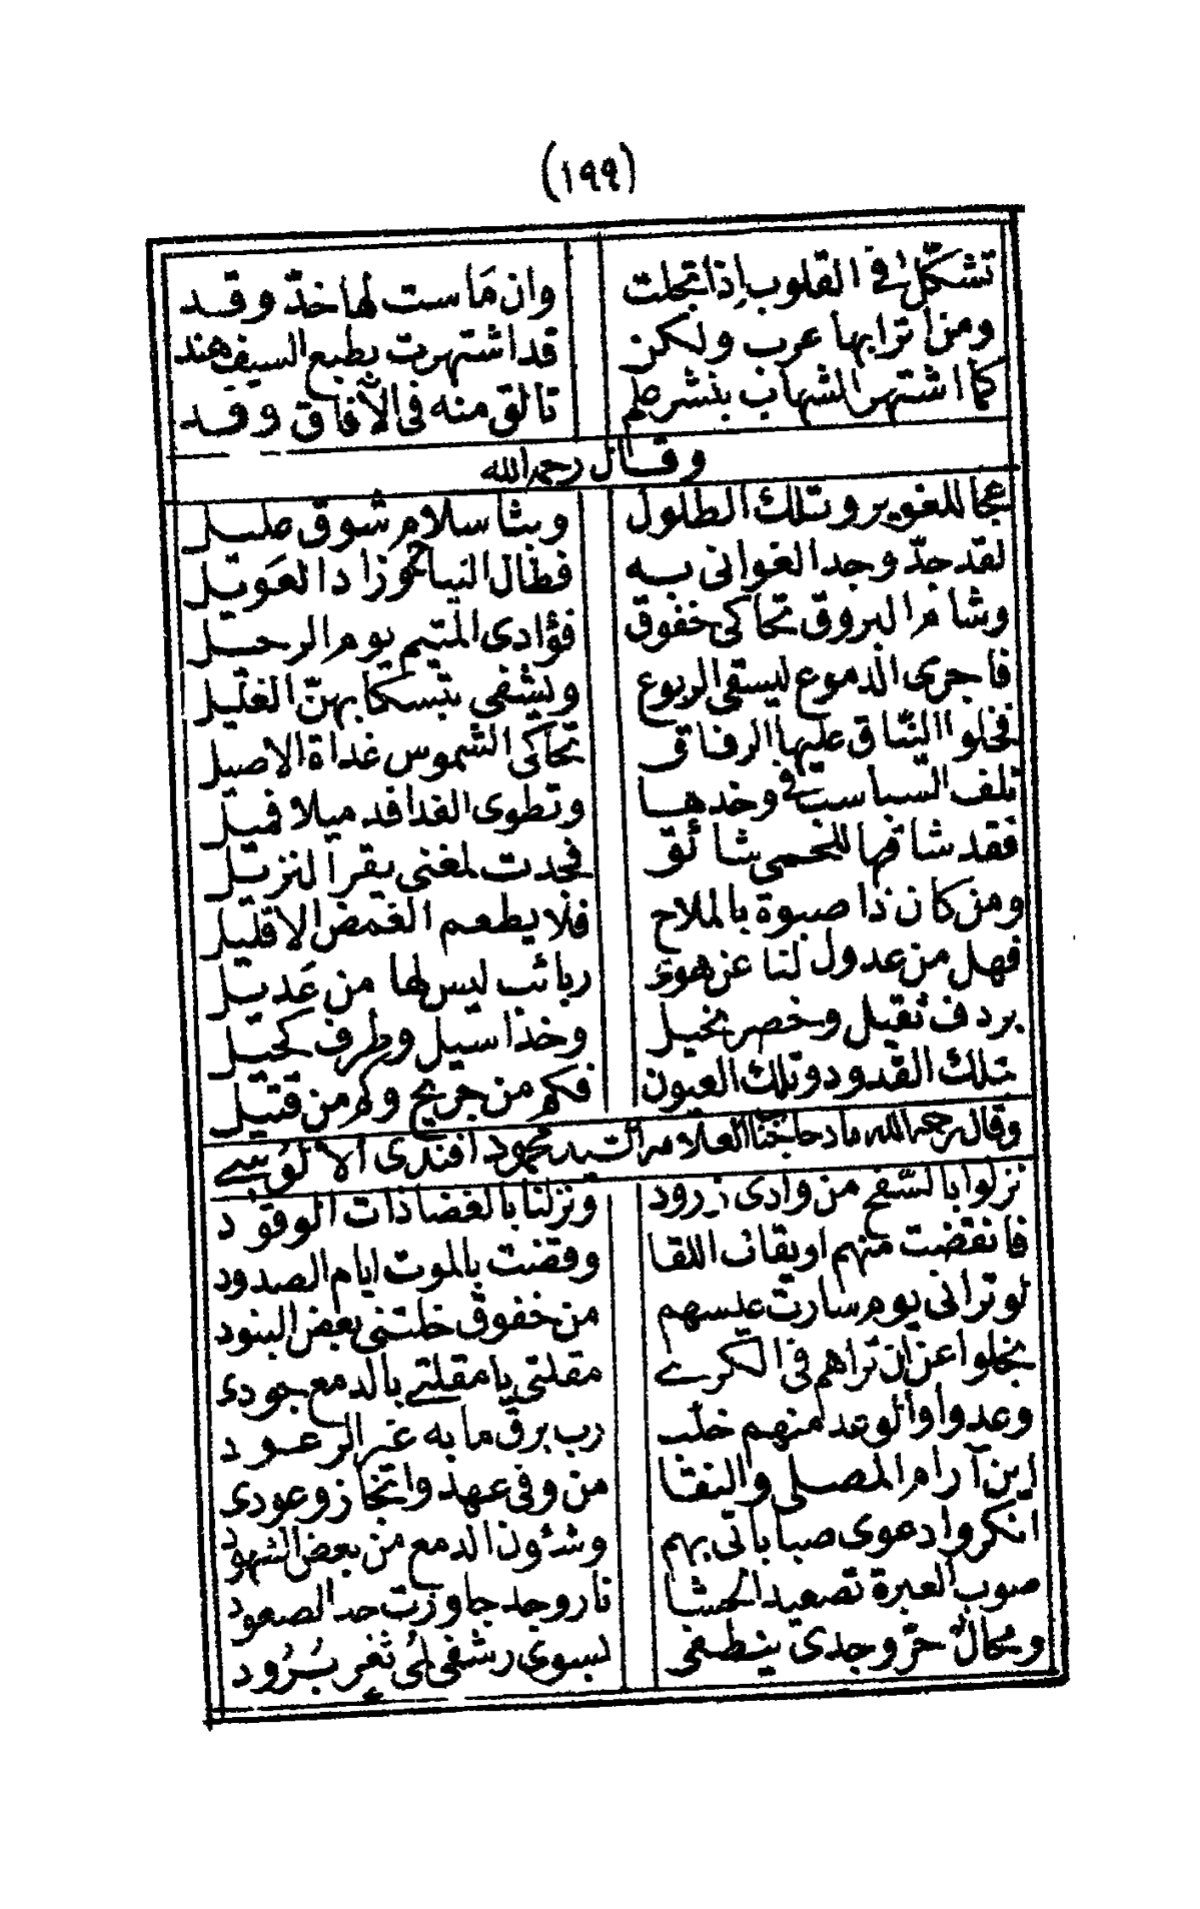 (١٩٩)
تشكّل في القلوب إذا تجلت وان ماست لها خدّ وقد
ومن اترابها عرب ولكن قد اشتهرت بطبع السيف هند
كما اشتهر الشهاب بنشر علم تالق منه في الآفاق وقد
وقال رحمه الله
عجا للغوير وتلك الطلول وبثا سلام شوق طويل
لقد جدّ وجد الغواني به فطال النياح وزاد العويل
وشام البروق تحاكي خفوق فؤادى المتيم يوم الرحيل
فاجرى الدموع ليسقي الربوع ويشفي بتسكابهنّ الغليل
فخلوا النياق عليها الرفاق تحاكي الشموس غداة الاصيل
تلف السباسب في وخدها وتطوى الفدافد ميلا فميل
فقد شاقها للحمى شائق فجدت لمغنى بقرا لنزيل
ومن كان ذا صبوة بالملاح فلا يطعم الغمض الا قليل
فهل من عدول لنا عن هوى ربائب ليس لها من عديل
بردف ثقيل وخصر نحيل وخد اسيل وطرف كحيل
بتلك القدود وتلك العيون فكم من جريح وكم من قتيل
وقال رحمه الله مادحا جناب العلامه السيد محمود افندى الآلوسي
نزلوا بالسفح من وادى زرود ونزلنا بالغضا ذات الوقود
فانقضت منهم اويقات اللقا وقضت بالموت ايام الصدود
لو ترانى يوم سارت عيسهم من خفوق خلتني بعض البنود
بخلوا عن ان تراهم في الكرى مقلتي يا مقلتي بالدمع جودى
وعدوا وألوعد منهم خلّب رب برق ما به غير الرعود
اين آرام المصلى والنقا من وفى عهد وانجاز وعودى
انكروا دعوى صباباتى بهم وشئون الدمع من بعض الشهود
صوب العبرة تصعيد الحشا نار وجد جاوزت حد الصعود
ومحال حرّ وجدى ينطفي لسوى رشفي لمى ثغر برود